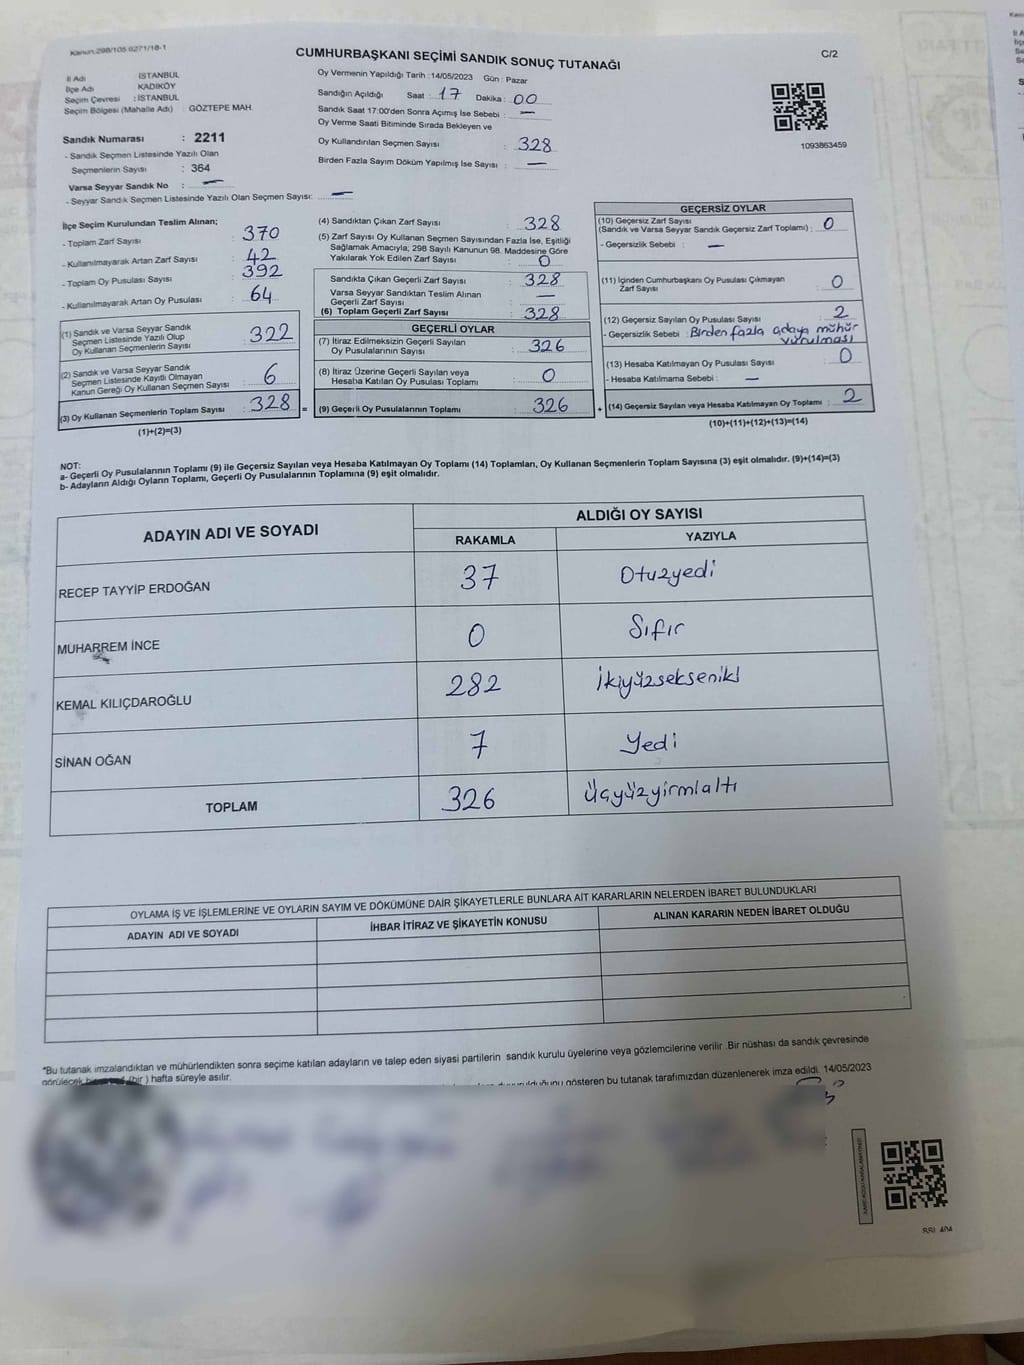 Kanun:298/105 6271/18-1
CUMHURBAŞKANI SEÇİMİ SANDIK SONUÇ TUTANAĞI
C/2
İl Adı : İSTANBUL
İlçe Adı KADIKÖY
Seçim Çevresi : İSTANBUL
Seçim Bölgesi (Mahalle Adı) : GÖZTEPE MAH.
Sandık Numarası : 2211
- Sandık Seçmen Listesinde Yazılı Olan
Seçmenlerin Sayısı : 364
Varsa Seyyar Sandık No : —
- Seyyar Sandık Seçmen Listesinde Yazılı Olan Seçmen Sayısı: —
Oy Vermenin Yapıldığı Tarih :14/05/2023 Gün : Pazar
Sandığın Açıldığı Saat : 17 Dakika : 00
Sandık Saat 17:00'den Sonra Açımış İse Sebebi : —
Oy Verme Saati Bitiminde Sırada Bekleyen ve
Oy Kullandırılan Seçmen Sayısı : 328
Birden Fazla Sayım Döküm Yapılmış İse Sayısı : —
1093863459
İlçe Seçim Kurulundan Teslim Alınan;
- Toplam Zarf Sayısı : 370
- Kullanılmayarak Artan Zarf Sayısı : 42
- Toplam Oy Pusulası Sayısı : 392
- Kullanılmayarak Artan Oy Pusulası : 64
(1) Sandık ve Varsa Seyyar Sandık
Seçmen Listesinde Yazılı Olup
Oy Kullanan Seçmenlerin Sayısı : 322
(2) Sandık ve Varsa Seyyar Sandık
Seçmen Listesinde Kayıtlı Olmayan
Kanun Gereği Oy Kullanan Seçmen Sayısı : 6
(3) Oy Kullanan Seçmenlerin Toplam Sayısı : 328 =
(1)+(2)=(3)
(4) Sandıktan Çıkan Zarf Sayısı : 328
(5) Zarf Sayısı Oy Kullanan Seçmen Sayısından Fazla İse, Eşitliği
Sağlamak Amacıyla; 298 Sayılı Kanunun 98. Maddesine Göre
Yakılarak Yok Edilen Zarf Sayısı : 0
Sandıkta Çıkan Geçerli Zarf Sayısı : 328
Varsa Seyyar Sandıktan Teslim Alınan
Geçerli Zarf Sayısı : —
(6) Toplam Geçerli Zarf Sayısı : 328
GEÇERLİ OYLAR
(7) İtiraz Edilmeksizin Geçerli Sayılan
Oy Pusulalarının Sayısı : 326
(8) İtiraz Üzerine Geçerli Sayılan veya
Hesaba Katılan Oy Pusulası Toplamı : 0
(9) Geçerli Oy Pusulalarının Toplamı : 326 +
GEÇERSİZ OYLAR
(10) Geçersiz Zarf Sayısı
(Sandık ve Varsa Seyyar Sandık Geçersiz Zarf Toplamı) : 0
- Geçersizlik Sebebi : —
(11) İçinden Cumhurbaşkanı Oy Pusulası Çıkmayan
Zarf Sayısı : 0
(12) Geçersiz Sayılan Oy Pusulası Sayısı : 2
- Geçersizlik Sebebi : Birden fazla adaya mühür
vurulması
(13) Hesaba Katılmayan Oy Pusulası Sayısı : 0
- Hesaba Katılmama Sebebi : —
(14) Geçersiz Sayılan veya Hesaba Katılmayan Oy Toplamı : 2
(10)+(11)+(12)+(13)=(14)
NOT:
a- Geçerli Oy Pusulalarının Toplamı (9) ile Geçersiz Sayılan veya Hesaba Katılmayan Oy Toplamı (14) Toplamları, Oy Kullanan Seçmenlerin Toplam Sayısına (3) eşit olmalıdır. (9)+(14)=(3)
b- Adayların Aldığı Oyların Toplamı, Geçerli Oy Pusulalarının Toplamına (9) eşit olmalıdır.
ADAYIN ADI VE SOYADI
ALDIĞI OY SAYISI
RAKAMLA YAZIYLA
RECEP TAYYİP ERDOĞAN 37 Otuzyedi
MUHARREM İNCE 0 Sıfır
KEMAL KILIÇDAROĞLU 282 İkiyüzsekseniki
SİNAN OĞAN 7 Yedi
TOPLAM 326 Üçyüzyirmialtı
OYLAMA İŞ VE İŞLEMLERİNE VE OYLARIN SAYIM VE DÖKÜMÜNE DAİR ŞİKAYETLERLE BUNLARA AİT KARARLARIN NELERDEN İBARET BULUNDUKLARI
ADAYIN ADI VE SOYADI İHBAR İTİRAZ VE ŞİKAYETİN KONUSU ALINAN KARARIN NEDEN İBARET OLDUĞU
*Bu tutanak imzalandıktan ve mühürlendikten sonra seçime katılan adayların ve talep eden siyasi partilerin sandık kurulu üyelerine veya gözlemcilerine verilir .Bir nüshası da sandık çevresinde
görülecek (bir ) hafta süreyle asılır.
gösteren bu tutanak tarafımızdan düzenlenerek imza edildi. 14/05/2023